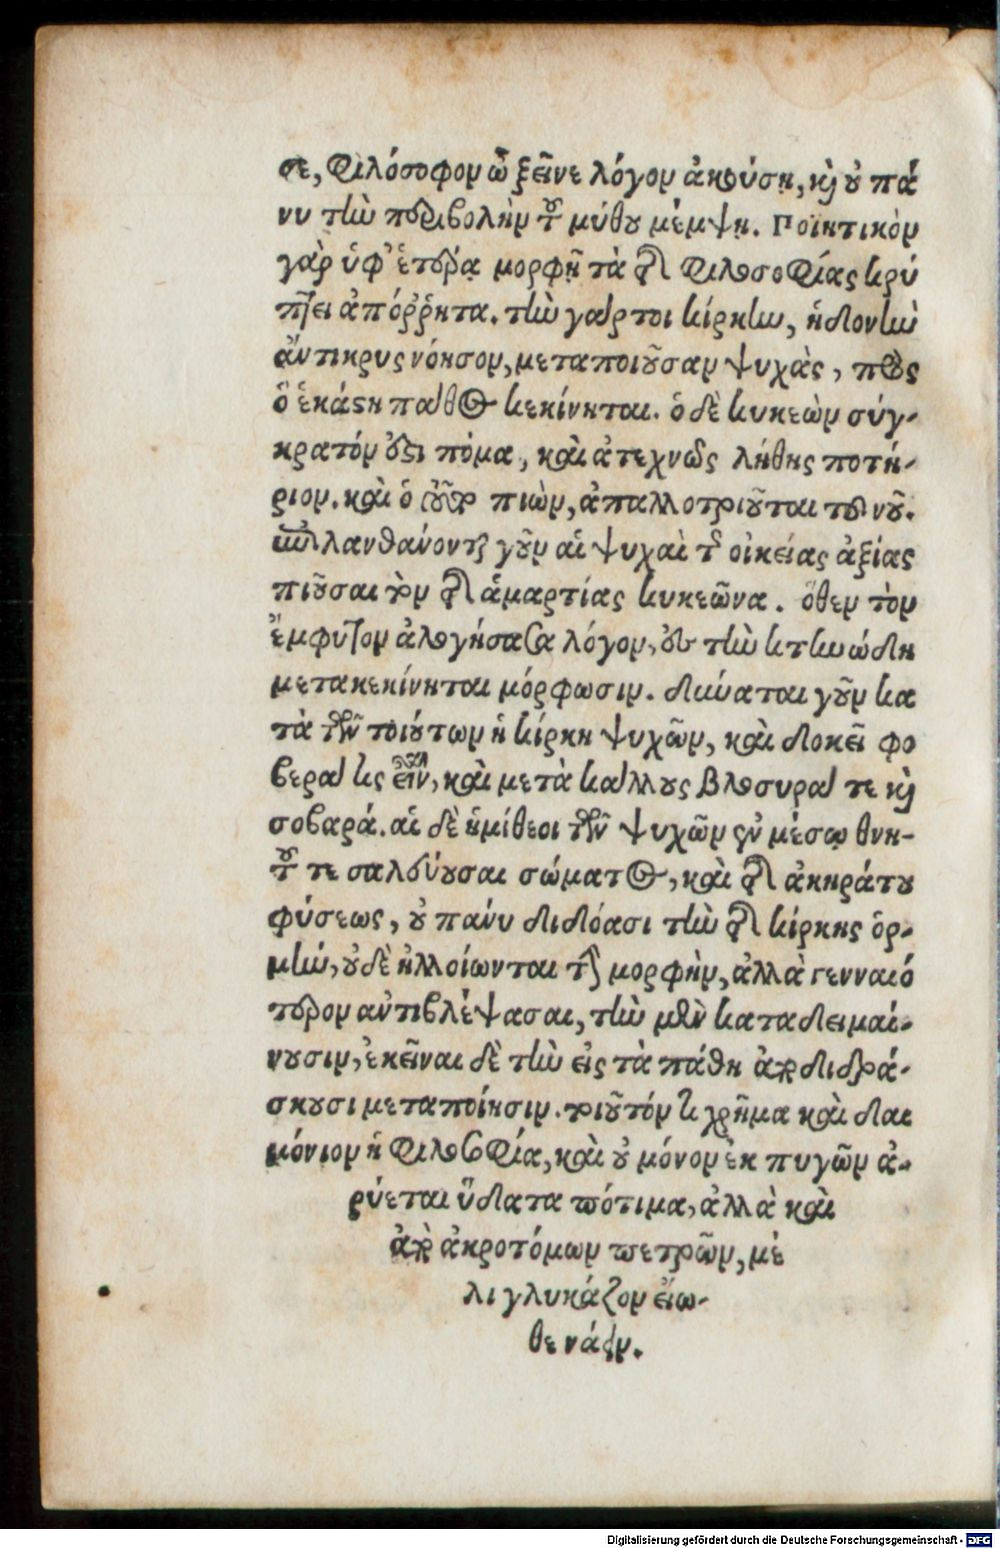 σε, φιλόσοφον ὦ ξεῖνε λόγον ἀκούσῃ, καὶ οὐ πά
νυ τὴν περιβολὴν τοῦ μύθου μέμψῃ. Ποιητικὸν
γὰρ ὑφ' ἑτέρᾳ μορφῇ τὰ τῆς φιλοσοφίας κρύ
πτει ἀπόῤῥητα. τὴν γάρ τοι κίρκην, ἡδονὴν
ἄντικρυς νόησον, μεταποιοῦσαν ψυχὰς, πρὸς
ὃ ἑκάστη πάθος κεκίνηται. ὁ δὲ κυκεὼν σύγ-
κρατόν ἐστι πόμα, καὶ ἀτεχνῶς λήθης ποτή-
ριον. καὶ ὁ πιὼν, ἀπαλλοτριοῦται τοῦ νοῦ.
ἐπιλανθάνονται γοῦν αἱ ψυχαὶ τῆς οἰκείας ἀξίας
πιοῦσαι τὸν τῆς ἁμαρτίας κυκεῶνα. ὅθεν τὸν
ἔμφυτον ἀλογήσασα λόγον, ἐς τὴν κτηνώδη
μετακεκίνηται μόρφωσιν. δύναται γοῦν κα
τὰ τῶν τοιούτων ἡ κίρκη ψυχῶν, καὶ δοκεῖ φο
βερά τις εἶναι, καὶ μετὰ κάλλους βλοσυρά τε καὶ
σοβαρά. αἱ δὲ ἡμίθεοι τῶν ψυχῶν ἐν μέσῳ θνη-
τοῦ τε σαλεύουσαι σώματος, καὶ τῆς ἀκηράτου
φύσεως, οὐ πάνυ διδόασι τὴν τῆς κίρκης ὁρ-
μὴν, οὐδὲ ἠλλοίωνται τὴν μορφὴν, ἀλλὰ γενναιό
τερον ἀντιβλέψασαι, τὴν μὲν καταδειμαί-
νουσιν, ἐκεῖναι δὲ τὴν εἰς τὰ πάθη παραδιδρά-
σκουσι μεταποίησιν. τοιοῦτόν τι χρῆμα καὶ δαι
μόνιον ἡ φιλοσοφία, καὶ οὐ μόνον ἐκ πυγῶν ἀ-
ρύεται ὕδατα πότιμα, ἀλλὰ καὶ
ἀπὸ ἀκροτόμων πετρῶν, μέ
λι γλυκάζον εἴω-
θε νάειν.
Digitalisierung gefördert durch die Deutsche Forschungsgemeinschaft - DFG